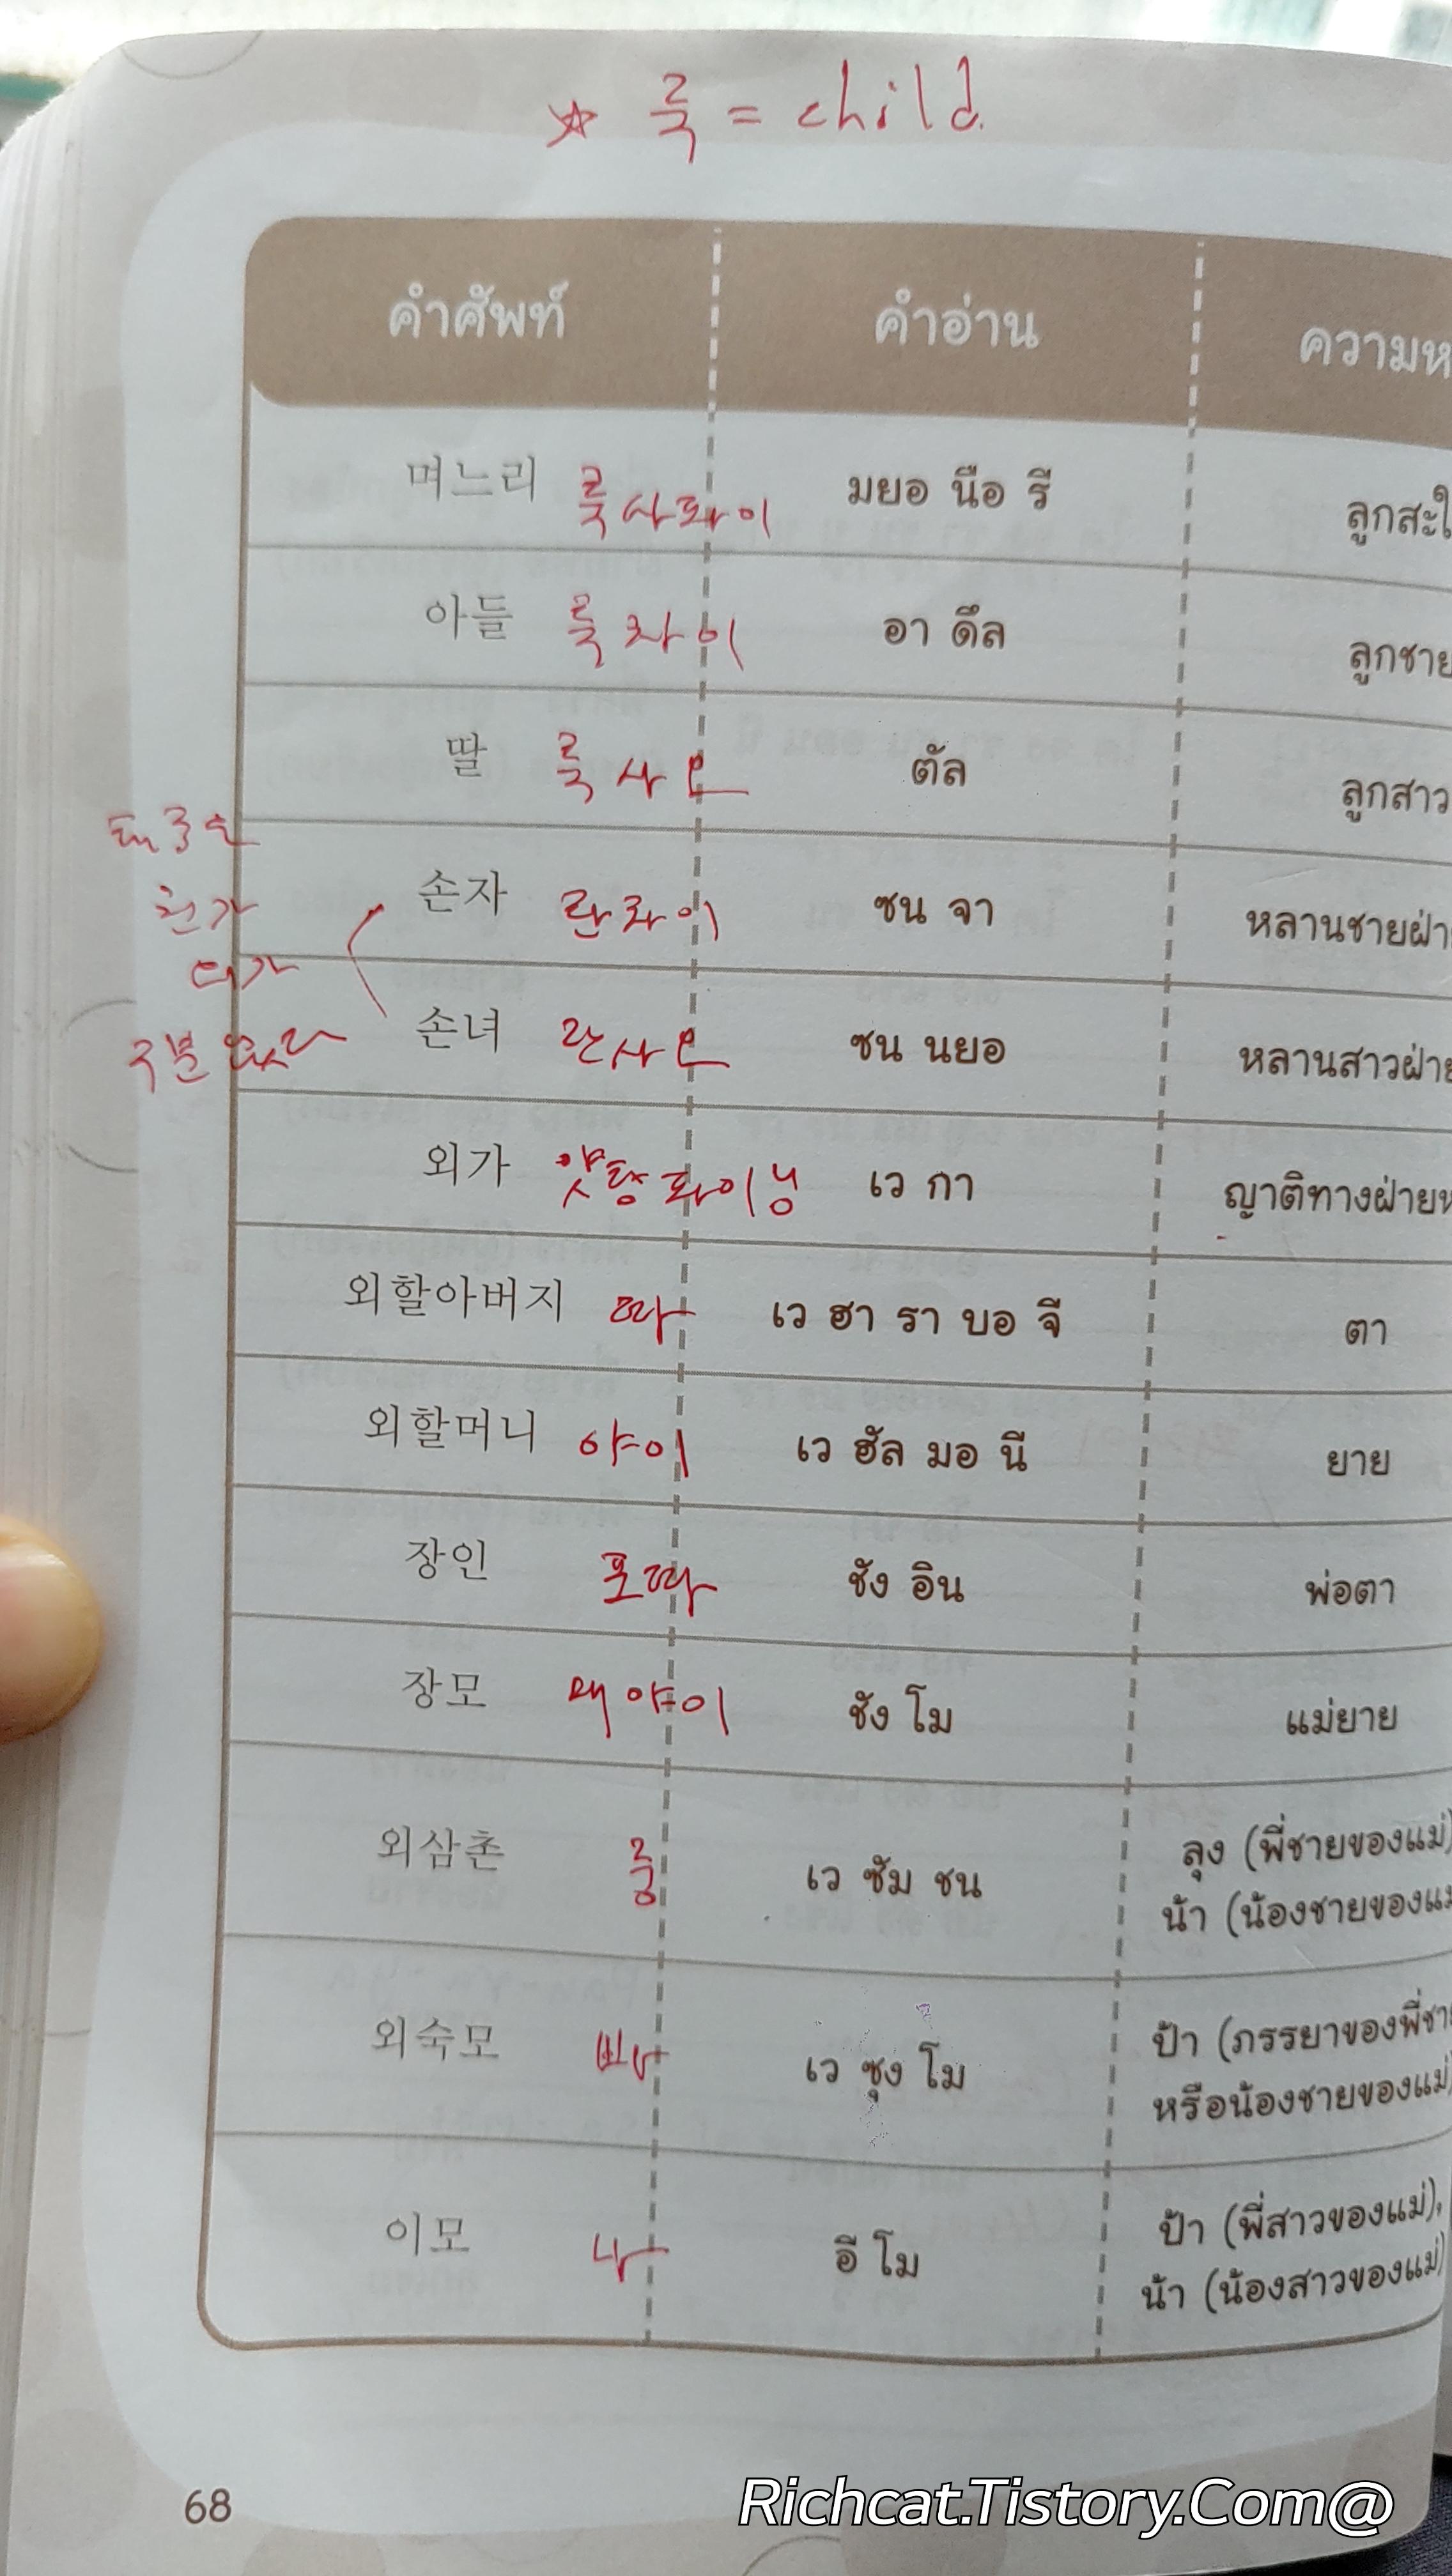 ☆ 룩 = child.
คำศัพท์ คำอ่าน ความห
며느리 룩사파이 มยอ นือ รี ลูกสะใ
아들 룩차이 อา ดึล ลูกชาย
딸 룩사오 ตัล ลูกสาว
태국은
친가
외가
구분 없다
손자 란차이 ซน จา หลานชายฝ่า
손녀 란사오 ซน นยอ หลานสาวฝ่าย
외가 เว กา ญาติทางฝ่ายห
외할아버지 따 เว ฮา รา บอ จี ตา
외할머니 야이 เว ฮัล มอ นี ยาย
장인 포따 ชัง อิน พ่อตา
장모 매야이 ชัง โม แม่ยาย
외삼촌 룽 เว ซัม ชน ลุง (พี่ชายของแม่)
น้า (น้องชายของแม่
외숙모 빠 เว ซุง โม ป้า (ภรรยาของพี่ชา
หรือน้องชายของแม่)
이모 나 อี โม ป้า (พี่สาวของแม่),
น้า (น้องสาวของแม่)
68
Richcat.Tistory.Com@